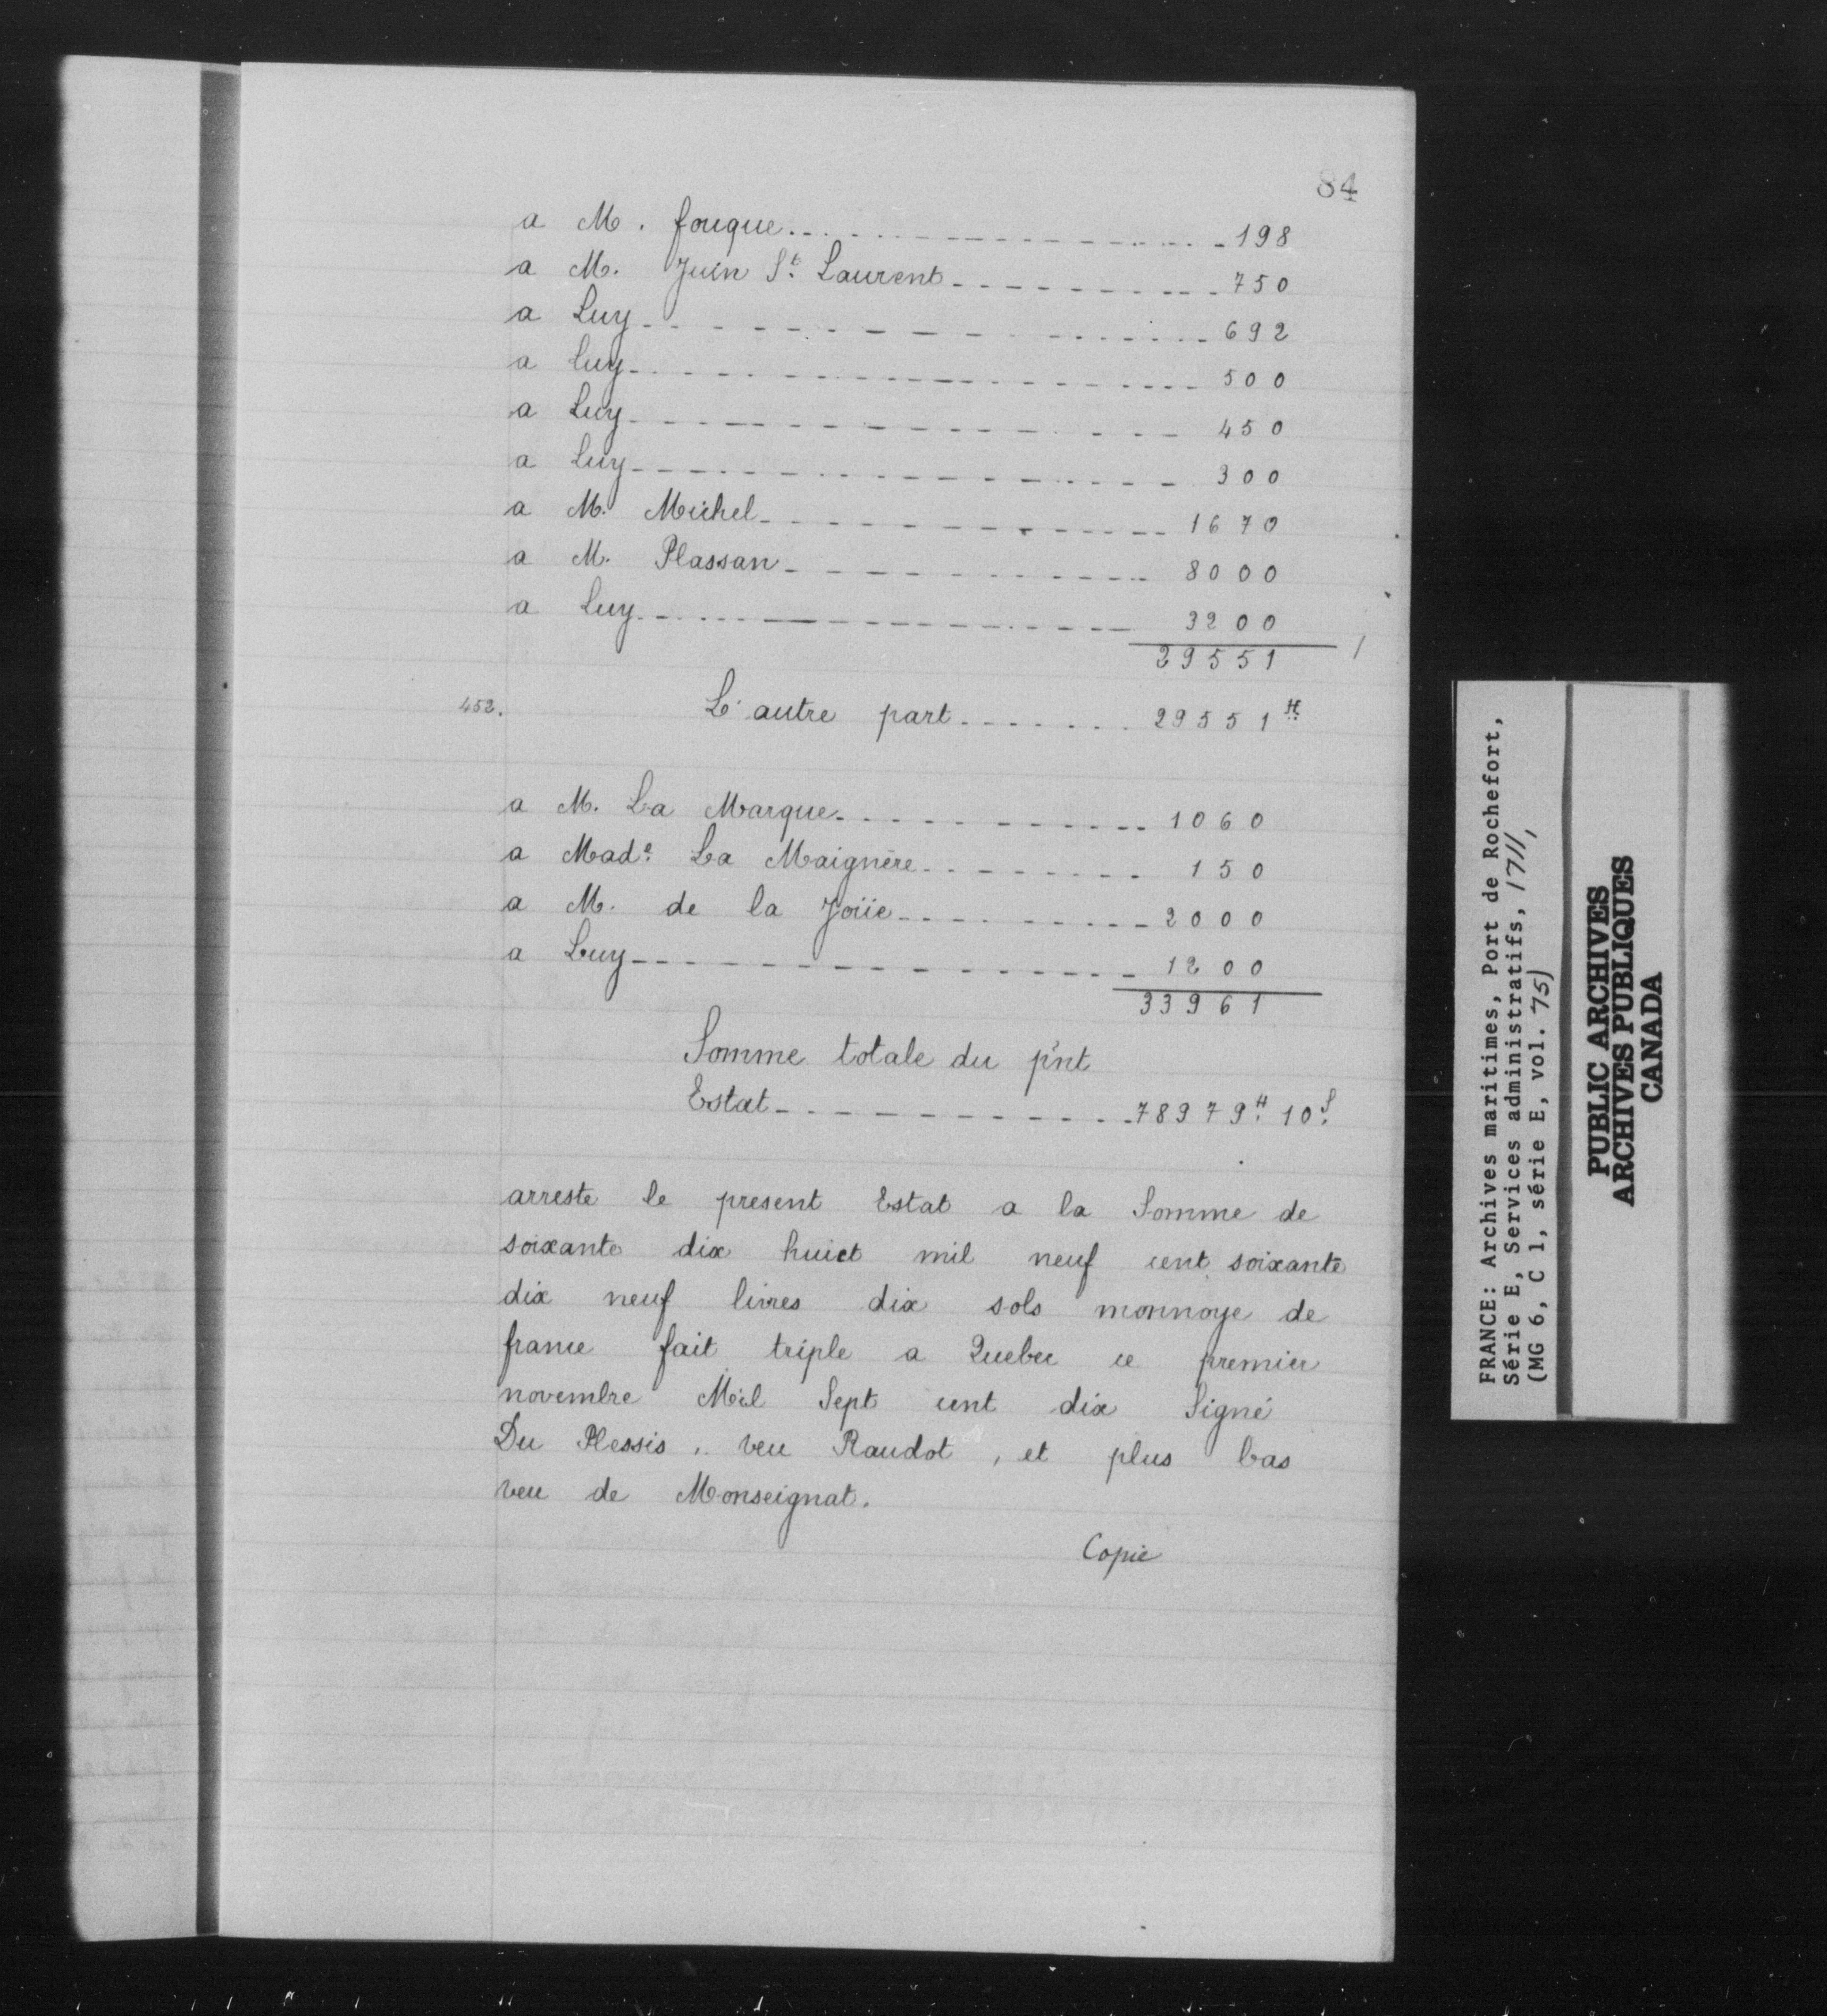 84
a M. fouque 198
a M. Juin St. Laurent 750
a Luy 692
a luy 500
a Luy 450
a Luy 300
a M. Michel 1670
a M. Plassan 8000
a Luy 3200
29551
452. L'autre part 29551 ₶
a M. La Marque 1060
a Made. La Maignère 150
a M. de la Joüe 2000
a Luy 1200
33961
Somme totale du p'nt
Estat 78979 ₶ 10 s.
arreste le present Estat a la Somme de
soixante dix huict mil neuf cent soixante
dix neuf livres dix sols monnoye de
france fait triple a Quebec ce premier
novembre Mil Sept cent dix Signé
Du Plessis, veu Raudot, et plus bas
veu de Monseignat.
Copie
FRANCE: Archives maritimes, Port de Rochefort,
Série E, Services administratifs, 1711,
(MG 6, C 1, série E, vol. 75)
PUBLIC ARCHIVES
ARCHIVES PUBLIQUES
CANADA